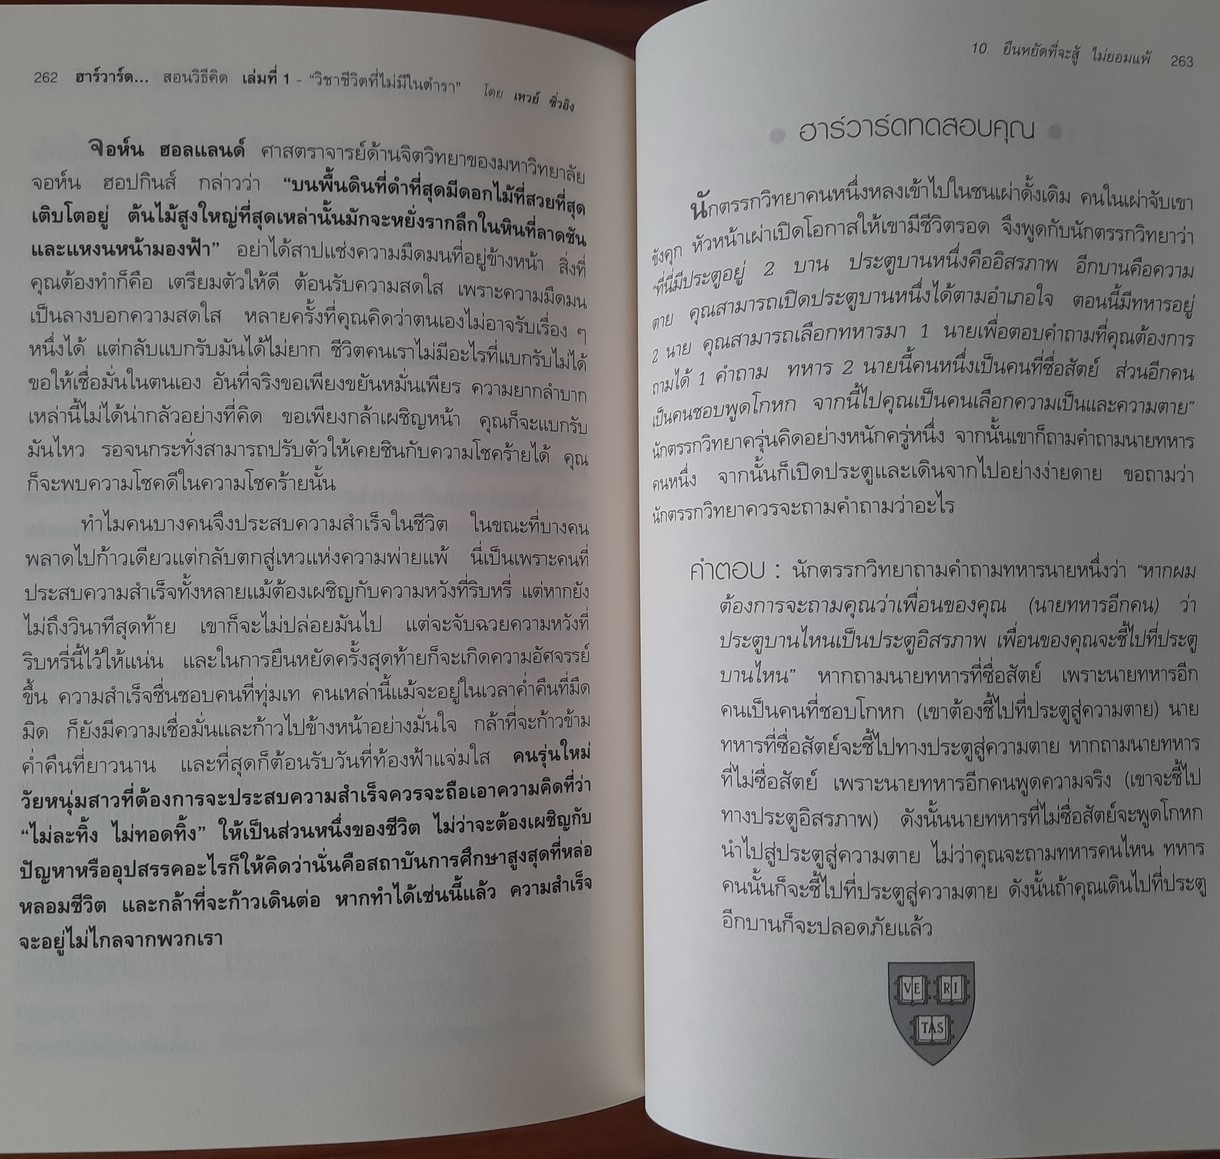 262 ฮาร์วาร์ด... สอนวิธีคิด เล่มที่ 1 - "วิชาชีวิตที่ไม่มีในตำรา" โดย เหวย์ ซิ่วอิง
จอห์น ฮอลแลนด์ ศาสตราจารย์ด้านจิตวิทยาของมหาวิทยาลัย
จอห์น ฮอปกินส์ กล่าวว่า "บนพื้นดินที่ดำที่สุดมีดอกไม้ที่สวยที่สุด
เติบโตอยู่ ต้นไม้สูงใหญ่ที่สุดเหล่านั้นมักจะหยั่งรากลึกในหินที่ลาดชัน
และแหงนหน้ามองฟ้า" อย่าได้สาปแช่งความมืดมนที่อยู่ข้างหน้า สิ่งที่
คุณต้องทำก็คือ เตรียมตัวให้ดี ต้อนรับความสดใส เพราะความมืดมน
เป็นลางบอกความสดใส หลายครั้งที่คุณคิดว่าตนเองไม่อาจรับเรื่อง ๆ
หนึ่งได้ แต่กลับแบกรับมันได้ไม่ยาก ชีวิตคนเราไม่มีอะไรที่แบกรับไม่ได้
ขอให้เชื่อมั่นในตนเอง อันที่จริงขอเพียงขยันหมั่นเพียร ความยากลำบาก
เหล่านี้ไม่ได้น่ากลัวอย่างที่คิด ขอเพียงกล้าเผชิญหน้า คุณก็จะแบกรับ
มันไหว รอจนกระทั่งสามารถปรับตัวให้เคยชินกับความโชคร้ายได้ คุณ
ก็จะพบความโชคดีในความโชคร้ายนั้น
ทำไมคนบางคนจึงประสบความสำเร็จในชีวิต ในขณะที่บางคน
พลาดไปก้าวเดียวแต่กลับตกสู่เหวแห่งความพ่ายแพ้ นี่เป็นเพราะคนที่
ประสบความสำเร็จทั้งหลายแม้ต้องเผชิญกับความหวังที่ริบหรี่ แต่หากยัง
ไม่ถึงวินาทีสุดท้าย เขาก็จะไม่ปล่อยมันไป แต่จะจับฉวยความหวังที่
ริบหรี่นี้ไว้ให้แน่น และในการยืนหยัดครั้งสุดท้ายก็จะเกิดความอัศจรรย์
ขึ้น ความสำเร็จชื่นชอบคนที่ทุ่มเท คนเหล่านี้แม้จะอยู่ในเวลาค่ำคืนที่มืด
มิด ก็ยังมีความเชื่อมั่นและก้าวไปข้างหน้าอย่างมั่นใจ กล้าที่จะก้าวข้าม
ค่ำคืนที่ยาวนาน และที่สุดก็ต้อนรับวันที่ท้องฟ้าแจ่มใส คนรุ่นใหม่
วัยหนุ่มสาวที่ต้องการจะประสบความสำเร็จควรจะถือเอาความคิดที่ว่า
"ไม่ละทิ้ง ไม่ทอดทิ้ง" ให้เป็นส่วนหนึ่งของชีวิต ไม่ว่าจะต้องเผชิญกับ
ปัญหาหรืออุปสรรคอะไรก็ให้คิดว่านั่นคือสถาบันการศึกษาสูงสุดที่หล่อ
หลอมชีวิต และกล้าที่จะก้าวเดินต่อ หากทำได้เช่นนี้แล้ว ความสำเร็จ
จะอยู่ไม่ไกลจากพวกเรา
10. ยืนหยัดที่จะสู้ ไม่ยอมแพ้ 263
ฮาร์วาร์ดทดสอบคุณ
นักตรรกวิทยาคนหนึ่งหลงเข้าไปในชนเผ่าดั้งเดิม คนในเผ่าจับเขา
ขังคุก หัวหน้าเผ่าเปิดโอกาสให้เขามีชีวิตรอด จึงพูดกับนักตรรกวิทยาว่า
"ที่นี่มีประตูอยู่ 2 บาน ประตูบานหนึ่งคืออิสรภาพ อีกบานคือความ
ตาย คุณสามารถเปิดประตูบานหนึ่งได้ตามอำเภอใจ ตอนนี้มีทหารอยู่
2 นาย คุณสามารถเลือกทหารมา 1 นายเพื่อตอบคำถามที่คุณต้องการ
ถามได้ 1 คำถาม ทหาร 2 นายนี้คนหนึ่งเป็นคนที่ซื่อสัตย์ ส่วนอีกคน
เป็นคนชอบพูดโกหก จากนี้ไปคุณเป็นคนเลือกความเป็นและความตาย"
นักตรรกวิทยาครุ่นคิดอย่างหนักครู่หนึ่ง จากนั้นเขาก็ถามคำถามนายทหาร
คนหนึ่ง จากนั้นก็เปิดประตูและเดินจากไปอย่างง่ายดาย ขอถามว่า
นักตรรกวิทยาควรจะถามคำถามว่าอะไร
คำตอบ : นักตรรกวิทยาถามคำถามทหารนายหนึ่งว่า "หากผม
ต้องการจะถามคุณว่าเพื่อนของคุณ (นายทหารอีกคน) ว่า
ประตูบานไหนเป็นประตูอิสรภาพ เพื่อนของคุณจะชี้ไปที่ประตู
บานไหน" หากถามนายทหารที่ซื่อสัตย์ เพราะนายทหารอีก
คนเป็นคนที่ชอบโกหก (เขาต้องชี้ไปที่ประตูสู่ความตาย) นาย
ทหารที่ซื่อสัตย์จะชี้ไปทางประตูสู่ความตาย หากถามนายทหาร
ที่ไม่ซื่อสัตย์ เพราะนายทหารอีกคนพูดความจริง (เขาจะชี้ไป
ทางประตูอิสรภาพ) ดังนั้นนายทหารที่ไม่ซื่อสัตย์จะพูดโกหก
นำไปสู่ประตูสู่ความตาย ไม่ว่าคุณจะถามทหารคนไหน ทหาร
คนนั้นก็จะชี้ไปที่ประตูสู่ความตาย ดังนั้นถ้าคุณเดินไปที่ประตู
อีกบานก็จะปลอดภัยแล้ว
VE RI
TAS